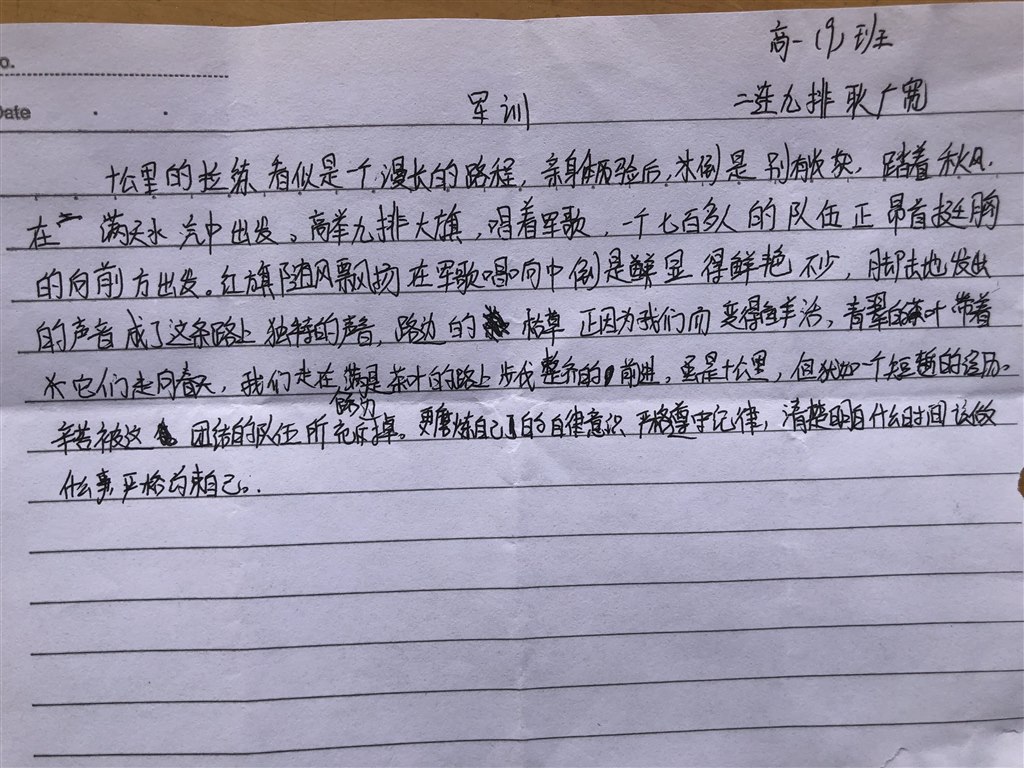 高一(9)班
No.
Date
军训
二连九排 耿广宽
十公里的拉练看似是一个漫长的路程,亲身体验后,来倒是别有收获,踏着秋风.
在 满天水汽中出发。高举九排大旗,唱着军歌,一个七百多人的队伍正昂首挺胸
的向前方出发。红旗随风飘扬在军歌唱响中倒是鲜显得鲜艳不少,脚击地发出
的声音成了这条路上独特的声音,路边的 枯草正因为我们而变得鲜活,青翠的茶叶带着
它们走向春天,我们走在满是茶叶的路上步伐整齐的前进,虽是十公里,但犹如一个短暂的经历。
辛苦被这 团结的队伍所 掉。更磨炼自己了的自律意识严格遵守纪律,清楚明白什么时间该做
什么事严格约束自己。